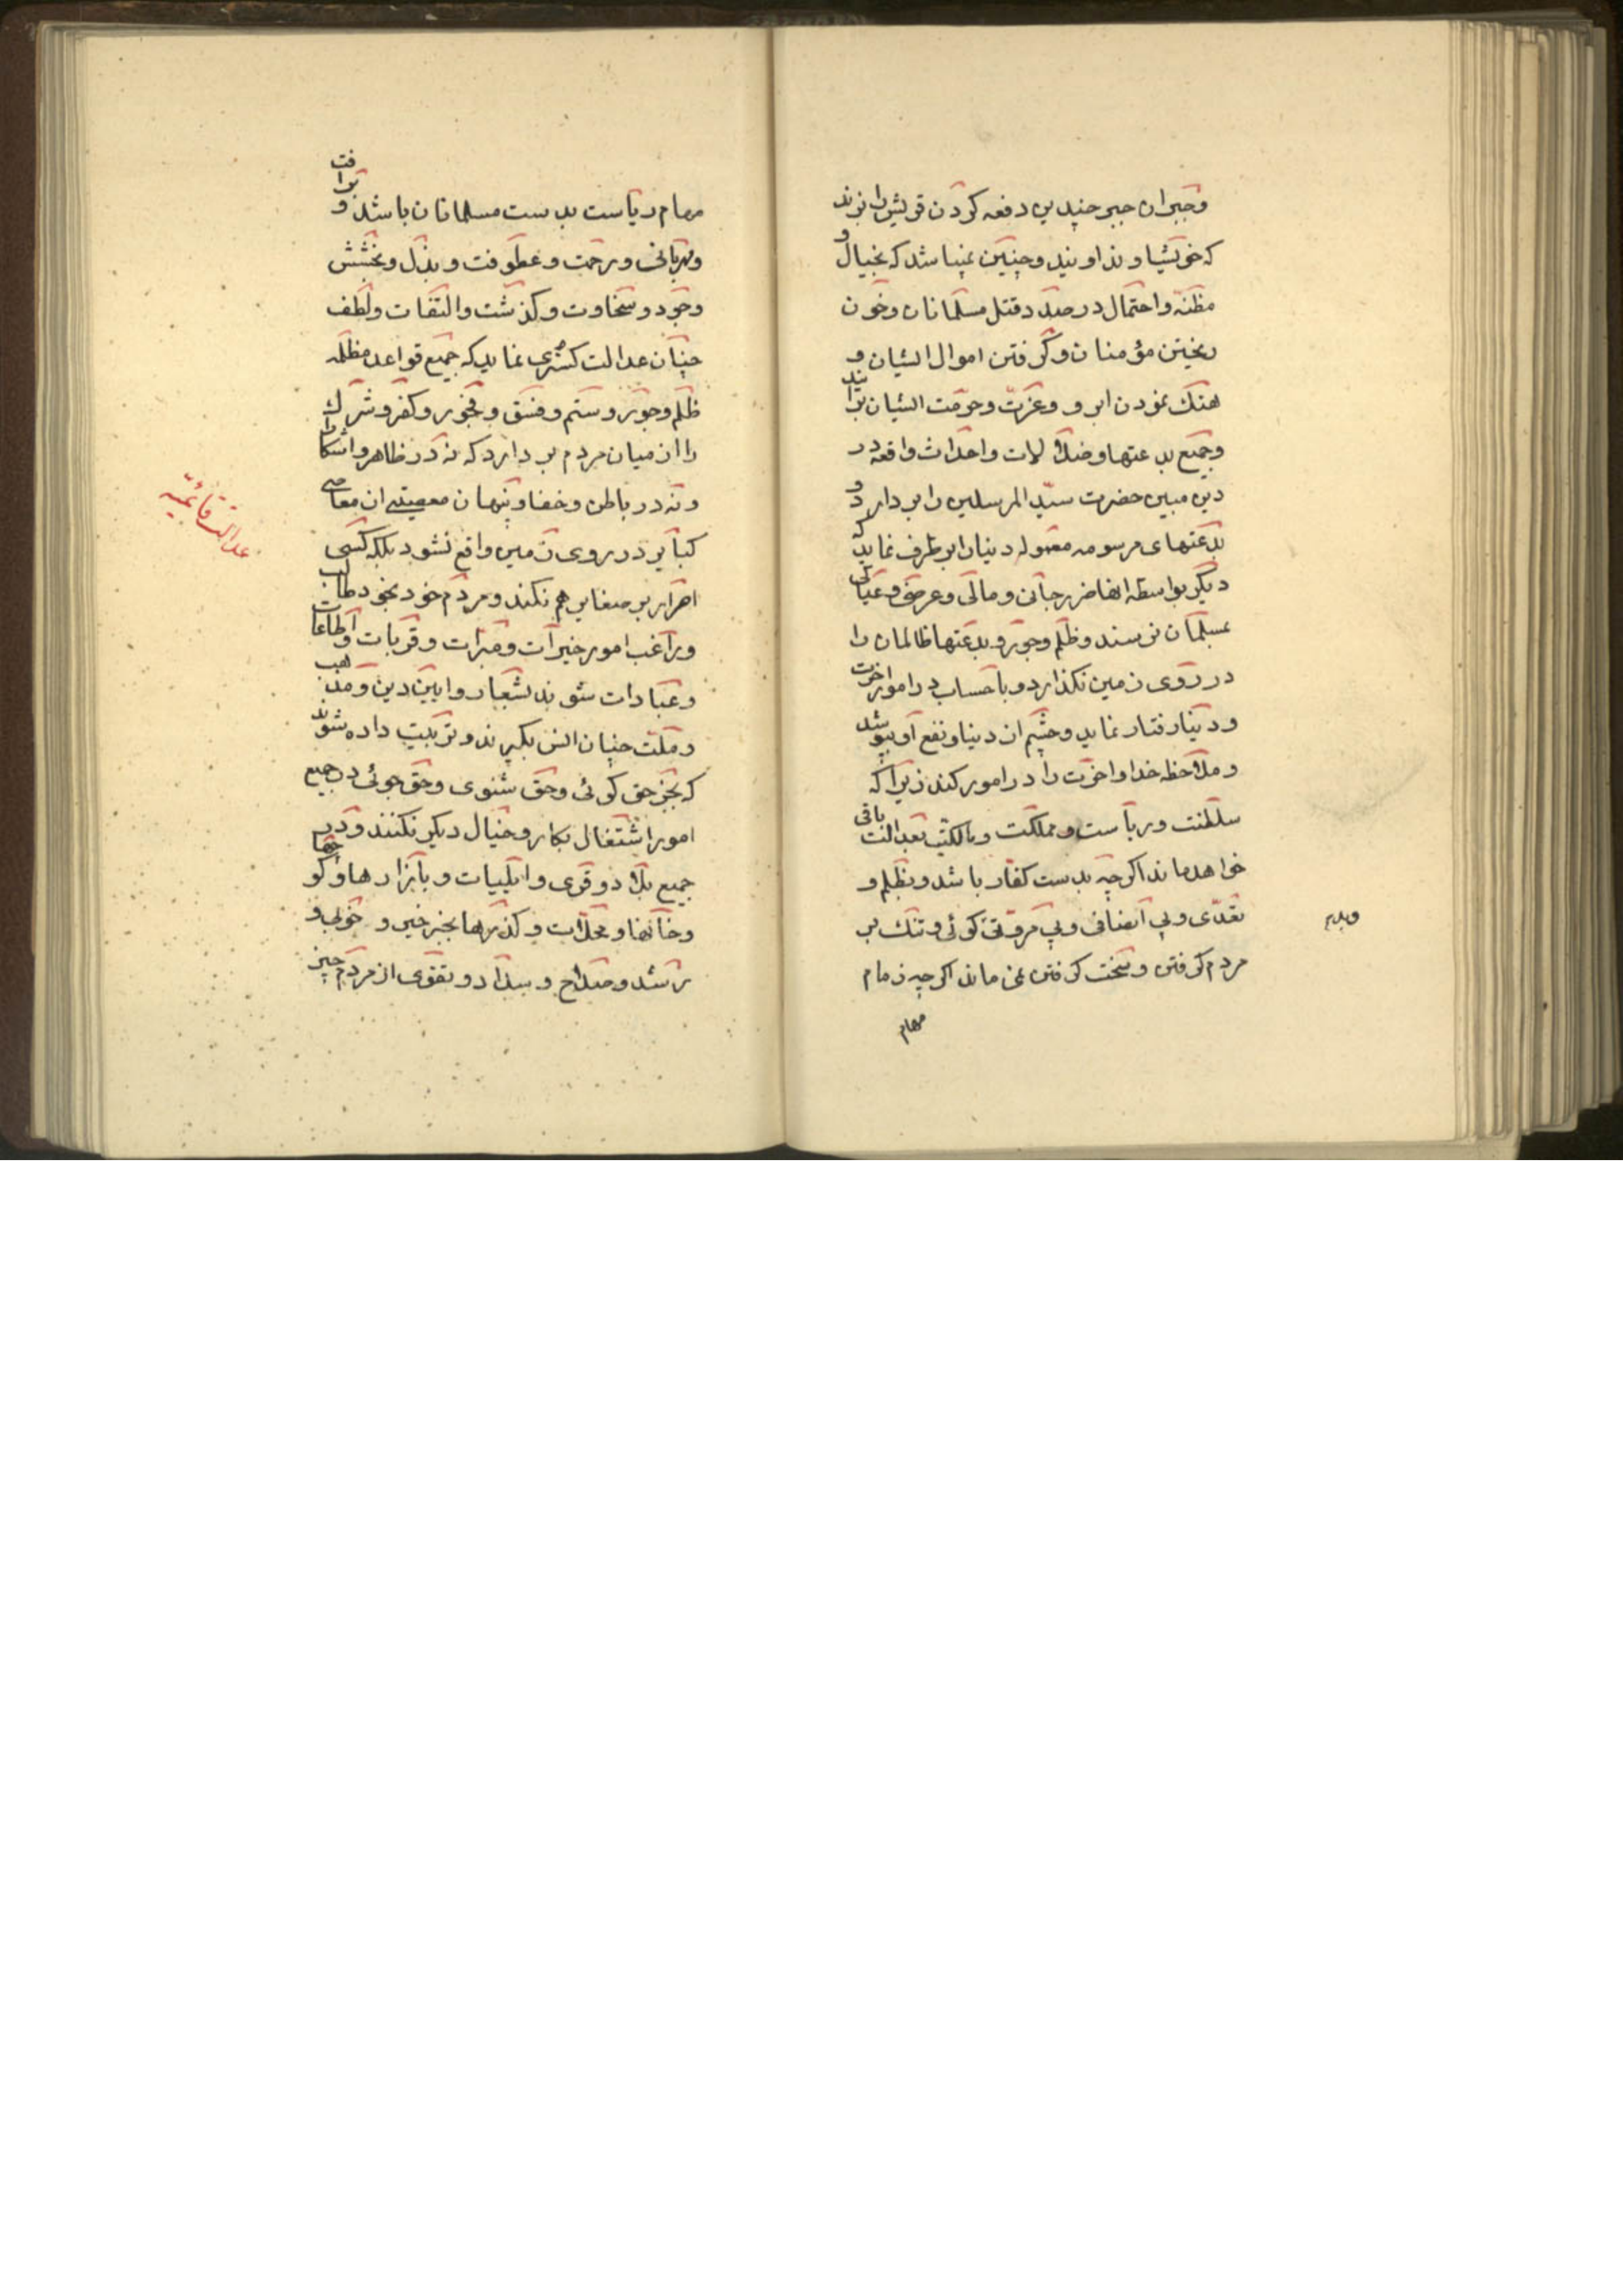 وجبران جبر چندین دفعه کردن قریش را نزند
که خویشاوند اویند و چنین نمیباشد که بخیال و
مظنه و احتمال درصدد قتل مسلمانان و خون
ریختن مؤمنان و گرفتن اموال ایشان و
هتک نمودن ابرو و عزت و حرمت ایشان برایند
و جمیع بدعتها و ضلالات و احداث واقعه در
دین مبین حضرت سید المرسلین را بر دارد و
بدعتهای مرسومه معموله دنیا را برطرف نماید که
دیگر بواسطه انها ضرر جانی و مالی و عرضی و عیالی
بمسلمانان نرسند و ظلم و جور و بدعتها ظالمان را
در روی زمین نگذارد و با حساب در امور اخرت
و دنیا رفتار نماید و چشم از دنیا و نفع او بپوشد
و ملاحظه خدا و اخرت را در امور کند زیرا که
سلطنت و ریاست و مملکت و مالکیت بعدالت باقی
خواهد ماند اگر چه بدست کفار باشد و بظلم و
تعدی و بی انصافی و بی مروتی گوئی و تنگ بر
مردم گرفتن و سخت گرفتن نمی ماند اگر چه زمام
مهام
مهام ریاست بدست مسلمانان باشد و برافت
و مهربانی و رحمت و عطوفت و بذل و بخشش
و جود و سخاوت و گذشت و التفات و لطف
چنان عدالت گستری نماید که جمیع قواعد مظلمه
ظلم و جور و ستم و فسق و فجور و کفر و شرک
را از میان مردم بر دارد که نه در ظاهر و اشکارا
و نه در باطن و خفا و پنهان معصیتی از معاصی
کبایر در روی زمین واقع نشود بلکه کسی
اصرار بر صغایر هم نکند و مردم خود بخود طالب
و راغب امور خیرات و مبرات و قربات و اطاعات
و عبادات شوند بشعار و ایین دین و مذهب
و ملت چنان انس بگیرند و تربیت داده شوند
که بجز حق گوئی و حق شنوی و حق جوئی در جمیع
امور اشتغال بکار و خیال دیگر نکنند و در
جمیع بلاد و قری و ایلیات و بازارها و کوچها
و خانها و محلات و گذرها بجز خیر و خوبی و
رشد و صلاح و سداد و تقوی از مردم چیز
عدالت قائمیه